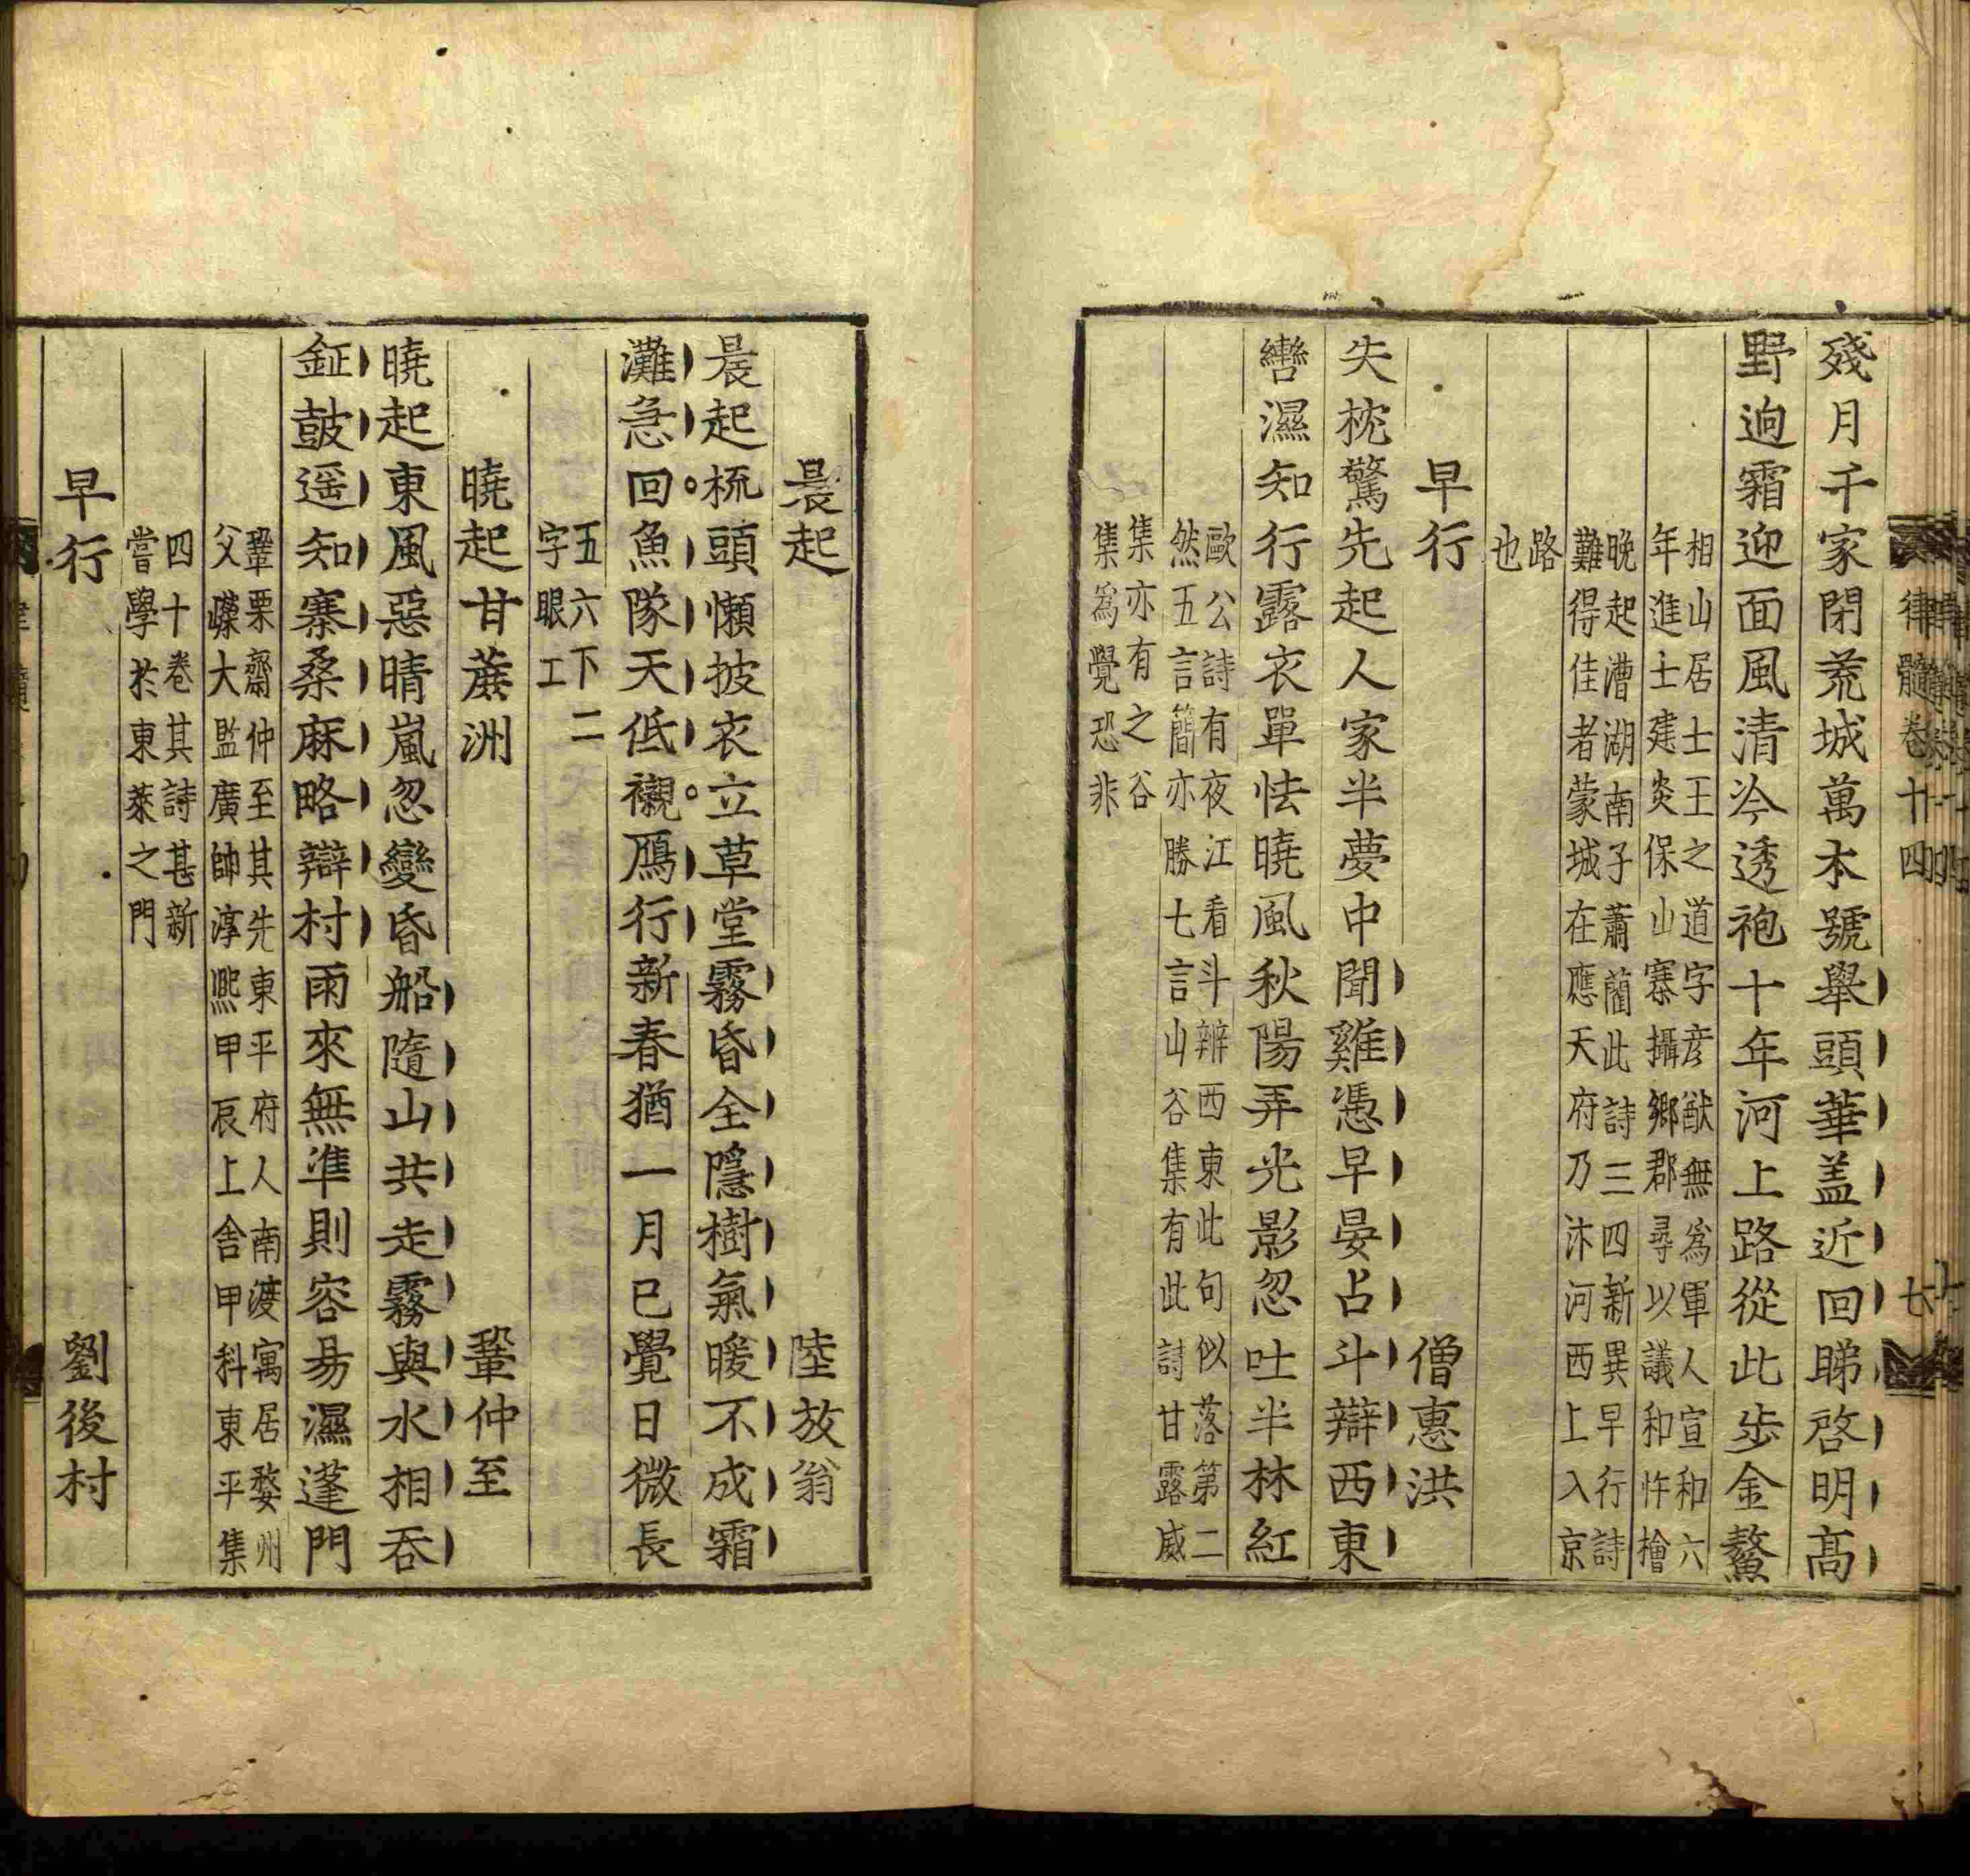 律髓卷十四
七
殘月千家閉荒城萬木號舉頭華盖近回睇啓明高
野逈霜迎面風清冷透袍十年河上路從此步金鰲
相山居士王之道字彦猷無爲軍人宣和六
年進士建炎保山寨攝鄉郡尋以議和忤檜
晚起漕湖南子蕭藺此詩三四新異早行詩
難得佳者蒙城在應天府乃汴河西上入京
路
也
早行
僧惠洪
失枕驚先起人家半夢中聞雞憑早晏占斗辯西東
轡濕知行露衣單怯曉風秋陽弄光影忽吐半林紅
歐公詩有夜江看斗辨西東此句似落第二
然五言簡亦勝七言山谷集有此詩甘露威
集亦有之谷
集爲覺恐非
晨起
陸放翁
晨起梳頭懶披衣立草堂霧昏全隱樹氣暖不成霜
灘急回魚隊天低襯鴈行新春猶一月已覺日微長
五六下二
字眼工
曉起甘蔗洲
鞏仲至
曉起東風惡晴嵐忽變昏船隨山共走霧與水相吞
鉦鼓遥知寨桑麻略辯村雨來無準則容易濕蓬門
鞏栗齋仲至其先東平府人南渡寓居婺州
父嶸大監廣帥淳熙甲辰上舍甲科東平集
四十卷其詩甚新
嘗學於東萊之門
早行
劉後村